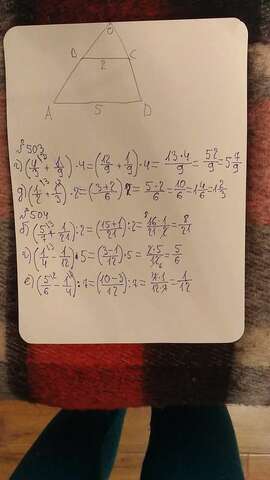 O
B C
2
A 5 D
№503
г) (4/3 + 1/9) · 4 = (12/9 + 1/9) · 4 = 13·4/9 = 52/9 = 5 7/9
д) (1/2 + 1/3) · 2 = (3+2/6) · 2 = 5·2/6 = 10/6 = 1 4/6 = 1 2/3
№504
б) (5/7 + 1/21) : 2 = (15+1/21) : 2 = 16·1/21·2 = 8/21
г) (1/4 - 1/12) · 5 = (3-1/12) · 5 = 2·5/12 = 5/6
е) (5/6 - 1/4) : 7 = (10-3/12) : 7 = 7·1/12·7 = 1/12